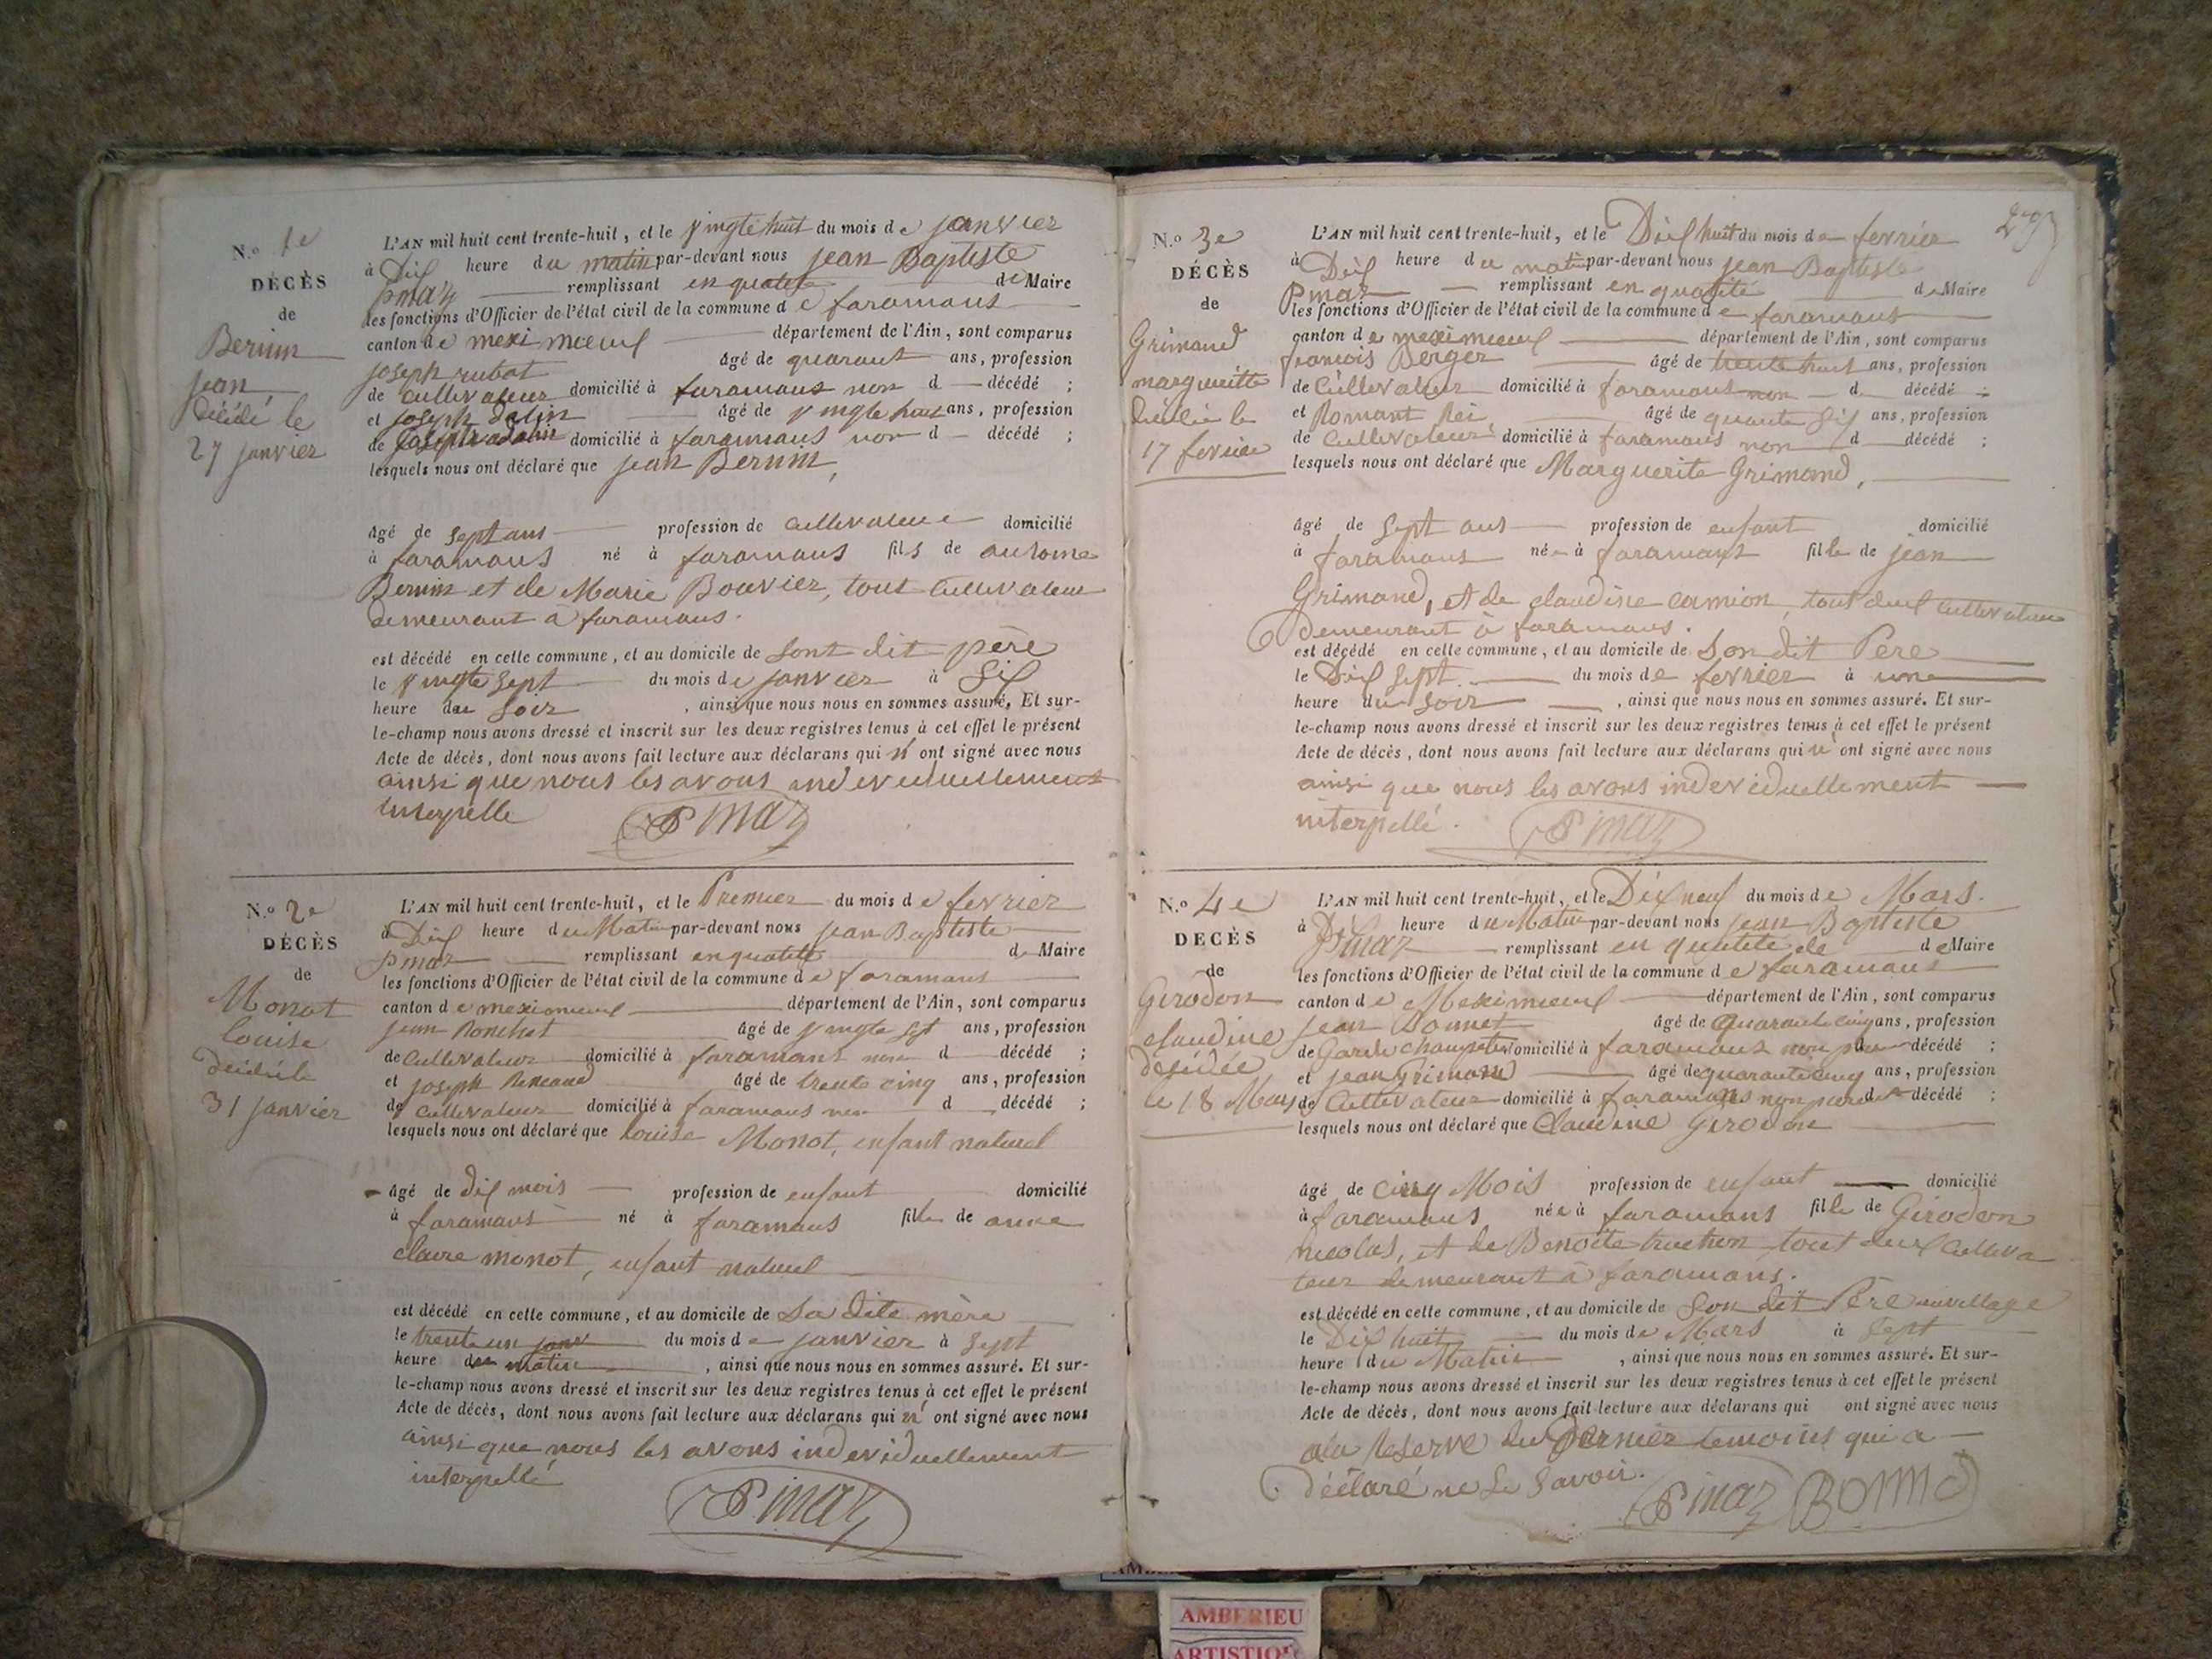 N.o 1e
DÉCÈS
de
Bernin
jean
décédé le
27 janvier
L'AN mil huit cent trente-huit, et le vingte huit du mois de janvier
à Dix heure du matin par-devant nous jean Baptiste
Pinaz remplissant en qualité de Maire
les fonctions d'Officier de l'état civil de la commune de faramans
canton de meximieux département de l'Ain, sont comparus
joseph rubat âgé de quarant ans, profession
de cultivateur domicilié à faramans non d décédé ;
et joseph âgé de vingte huit ans, profession
de domicilié à faramans non d décédé ;
lesquels nous ont déclaré que jean Bernin,
âgé de sept ans profession de cultivateur domicilié
à faramans né à faramans fils de antoine
Bernin et de Marie Bouvier, tout cultivateur
demeurant à faramans.
est décédé en cette commune, et au domicile de sont dit père
le vingte sept du mois de janvier à six
heure du soir, ainsi que nous nous en sommes assuré. Et sur-
le-champ nous avons dressé et inscrit sur les deux registres tenus à cet effet le présent
Acte de décès, dont nous avons fait lecture aux déclarans qui n' ont signé avec nous
ainsi que nous les avons
interpelle
Pinaz
N.o 2e
DÉCÈS
de
Monot
louise
31 janvier
L'AN mil huit cent trente-huit, et le Premier du mois de fevrier
à Dix heure du Matin par-devant nous jean Baptiste
Pinaz remplissant en qualité de Maire
les fonctions d'Officier de l'état civil de la commune de faramans
canton de meximieux département de l'Ain, sont comparus
jean Ronchet âgé de vingte sept ans, profession
de cultivateur domicilié à faramans non d décédé ;
et joseph âgé de trente cinq ans, profession
de cultivateur domicilié à faramans non d décédé ;
lesquels nous ont déclaré que louise Monot, enfant naturel
âgé de dix mois profession de enfant domicilié
à faramans né à faramans fille de anne
claire monot, enfant naturel
est décédé en cette commune, et au domicile de sa dite mère
le trente un janv du mois de janvier à sept
heure du matin, ainsi que nous nous en sommes assuré. Et sur-
le-champ nous avons dressé et inscrit sur les deux registres tenus à cet effet le présent
Acte de décès, dont nous avons fait lecture aux déclarans qui n' ont signé avec nous
ainsi que nous les avons indeviduellement
interpellé
Pinaz
293
N.o 3e
DÉCÈS
de
Grimand
margueritte
décédé le
17 fevrier
L'AN mil huit cent trente-huit, et le Dix huit du mois de fevrier
à Dix heure du matin par-devant nous jean Baptiste
Pinaz remplissant en qualité de Maire
les fonctions d'Officier de l'état civil de la commune de faramans
canton de meximieux département de l'Ain, sont comparus
francois Berger âgé de trente huit ans, profession
de Cultivateur domicilié à faramans non d décédé ;
et Romant Rei âgé de quarante six ans, profession
de Cultivateur domicilié à faramans non d décédé ;
lesquels nous ont déclaré que Marguerite Grimand,
âgé de sept ans profession de enfant domicilié
à faramans née à faramans fille de jean
Grimand, et de claudine camion, tout deux cultivateur
demeurant à faramans.
est décédé en cette commune, et au domicile de son dit Père
le Dix sept du mois de fevrier à une
heure du soir, ainsi que nous nous en sommes assuré. Et sur-
le-champ nous avons dressé et inscrit sur les deux registres tenus à cet effet le présent
Acte de décès, dont nous avons fait lecture aux déclarans qui n' ont signé avec nous
ainsi que nous les avons indeviduellement
interpellé.
Pinaz
N.o 4e
DÉCÈS
de
Girodon
claudine
décédée
le 18 Mars
L'AN mil huit cent trente-huit, et le Dix neuf du mois de Mars.
à Dix heure du Matin par-devant nous jean Baptiste
Pinaz remplissant en qualité de de Maire
les fonctions d'Officier de l'état civil de la commune de faramans
canton de Meximieux département de l'Ain, sont comparus
jean Bonnet âgé de quarante cinq ans, profession
de Garde champetre domicilié à faramans non décédé ;
et jean Grimand âgé de quarante cinq ans, profession
de Cultivateur domicilié à faramans non décédé ;
lesquels nous ont déclaré que Claudine Girodon
âgé de cinq Mois profession de enfant domicilié
à faramans née à faramans fille de Girodon
nicolas, et de Benoite truchon tout deux cultiva
teur demeurant à faramans.
est décédé en cette commune, et au domicile de son dit Père au village
le Dix huit du mois de Mars à sept
heure du Matin, ainsi que nous nous en sommes assuré. Et sur-
le-champ nous avons dressé et inscrit sur les deux registres tenus à cet effet le présent
Acte de décès, dont nous avons fait lecture aux déclarans qui ont signé avec nous
a la reserve du Dernier temoins qui a
déclaré ne le savoir.
Pinaz
AMBERIEU
ARTISTIQUE